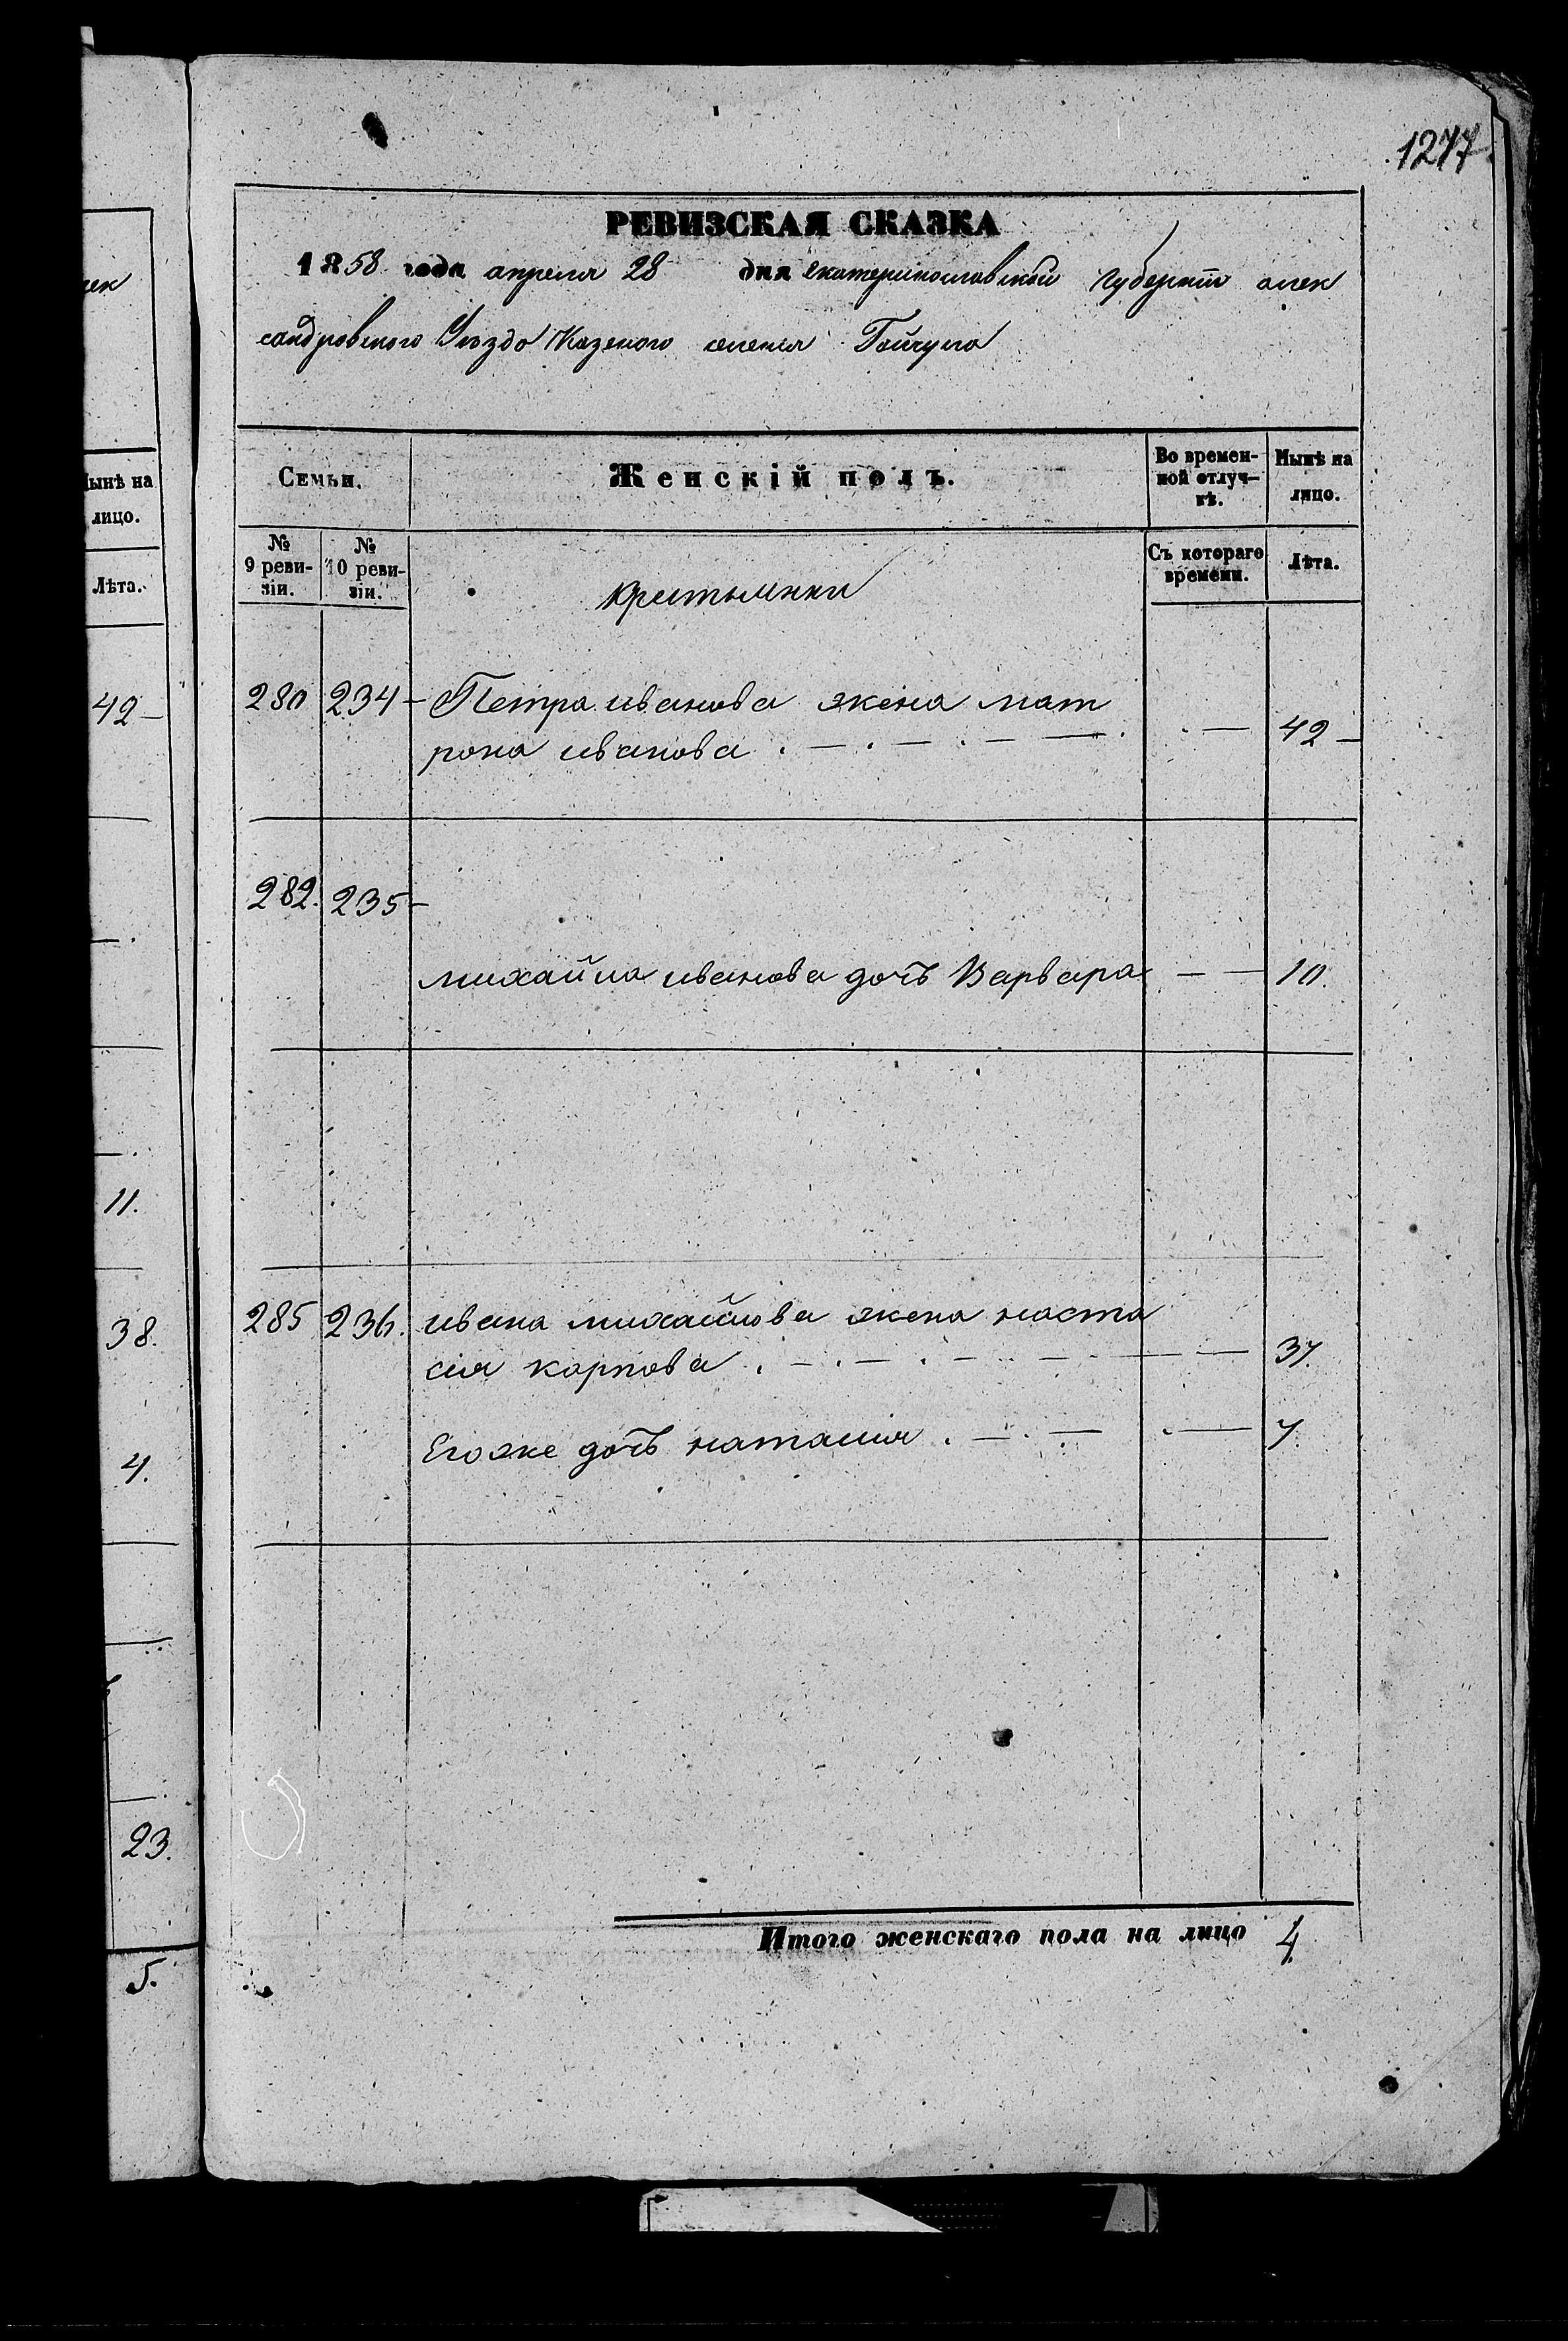 1277.
РЕВИЗСКАЯ СКАЗКА
1858 года апреля 28 дня екатеринославской губернии алек
сандровского Уезда Казеного селения Гайчула
Семьи.
Женскій полъ.
Во времен-
ной отлуч-
кѣ.
Нынѣ на
лицо.
№
9 реви-
зіи.
№
10 реви-
зіи.
Съ котораго
времени.
Лѣта.
280 234 - Петра иванова жена мат
рона иванова . — . — . — — . . — 42 -
282. 235 -
михайла иванова дочь Варвара — — 10.
285 236. ивана михайлова жена наста
сия карпова . — . — . — — — — 37.
Егоже дочь наталия . — . — . — 7.
Итого женскаго пола на лицо 4
лек
Нынѣ на
лицо.
Лѣта.
42 —
11.
38.
4.
23.
5.